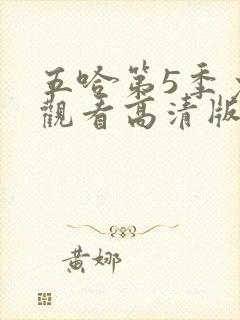 五哈第5季
觀看高清版
黃娜